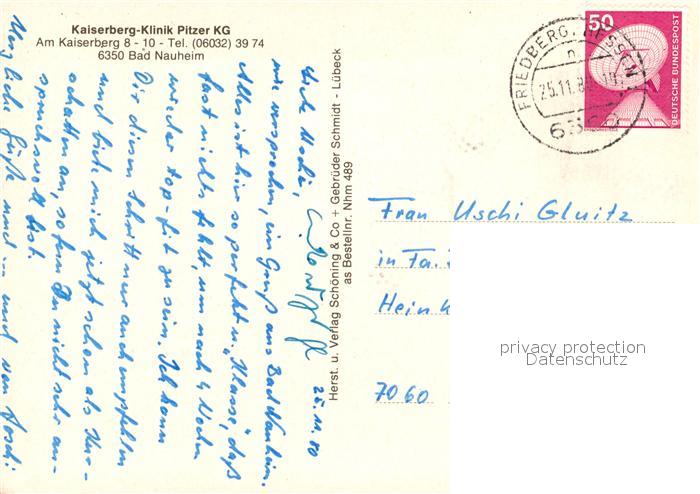 Kaiserberg-Klinik Pitzer KG
Am Kaiserberg 8 - 10 - Tel. (06032) 39 74
6350 Bad Nauheim
25.11.80
Liebe Uschi,
wie versprochen, ein Gruß aus Bad Nauheim.
Alles ist hier so perfekt u. "Klasse", daß
fast nichts fehlt, um nach 4 Wochen
wieder top-fit zu sein. Ich kann
Dir diesen Schritt nur auch empfehlen
und biete mich jetzt schon als Kur-
schatten an, sofern Du nicht sehr an-
spruchsvoll bist.
Herzliche Grüße und ... und von
Herst. u. Verlag Schöning & Co + Gebrüder Schmidt - Lübeck
as Bestellnr. Nhm 489
50
DEUTSCHE BUNDESPOST
FRIEDBERG, HESSEN
25.11.8
Frau Uschi Gluitz
in Fa.
Heink
7060
privacy protection
Datenschutz